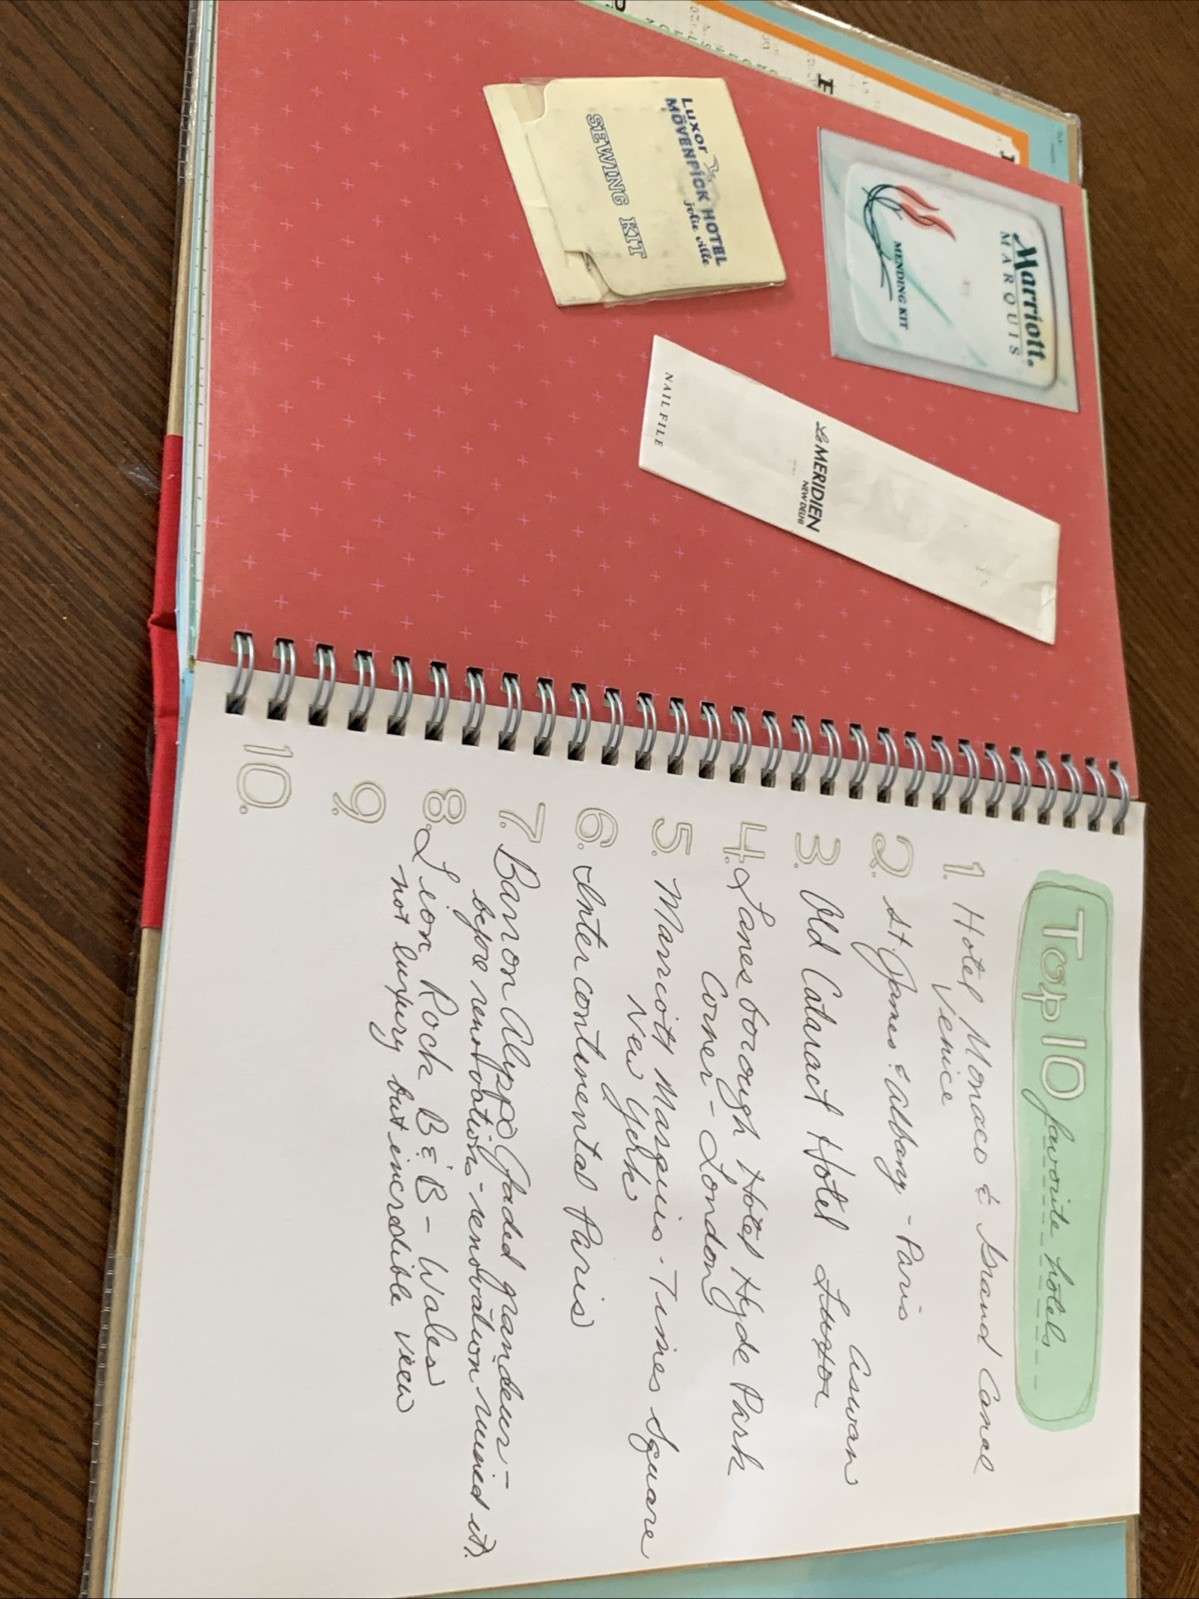 Luxor
MÖVENPICK HOTEL
jolie ville
SEWING KIT
Marriott.
MARQUIS
MENDING KIT
Le MERIDIEN
NEW DELHI
NAIL FILE
Top 10 favorite hotels
1. Hotel Monaco & Grand Canal
Venice
2. St. James & Albany - Paris
Aswan
3. Old Cataract Hotel Luxor
4. Lanesborough Hotel Hyde Park
Corner - London
5. Marriott Marquis - Times Square
New York
6. Intercontinental Paris
7. Barron Aleppo (faded grandeur -
before renovation - renovation ruined it).
8. Leon Rock B & B - Wales
not luxury but incredible view
9.
10.